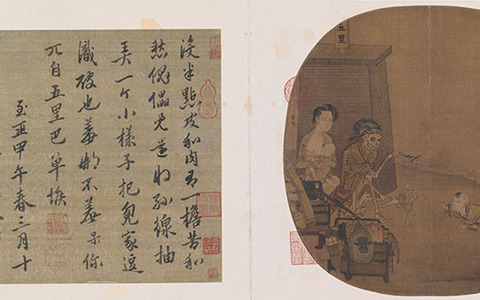 沒半點皮和肉有一擔苦和
愁傀儡兒還將絲線抽
弄一个小樣子把冤家逗
識破也羞那不羞呆你
兀自五里巴單堠
至正甲午春三月十
五里